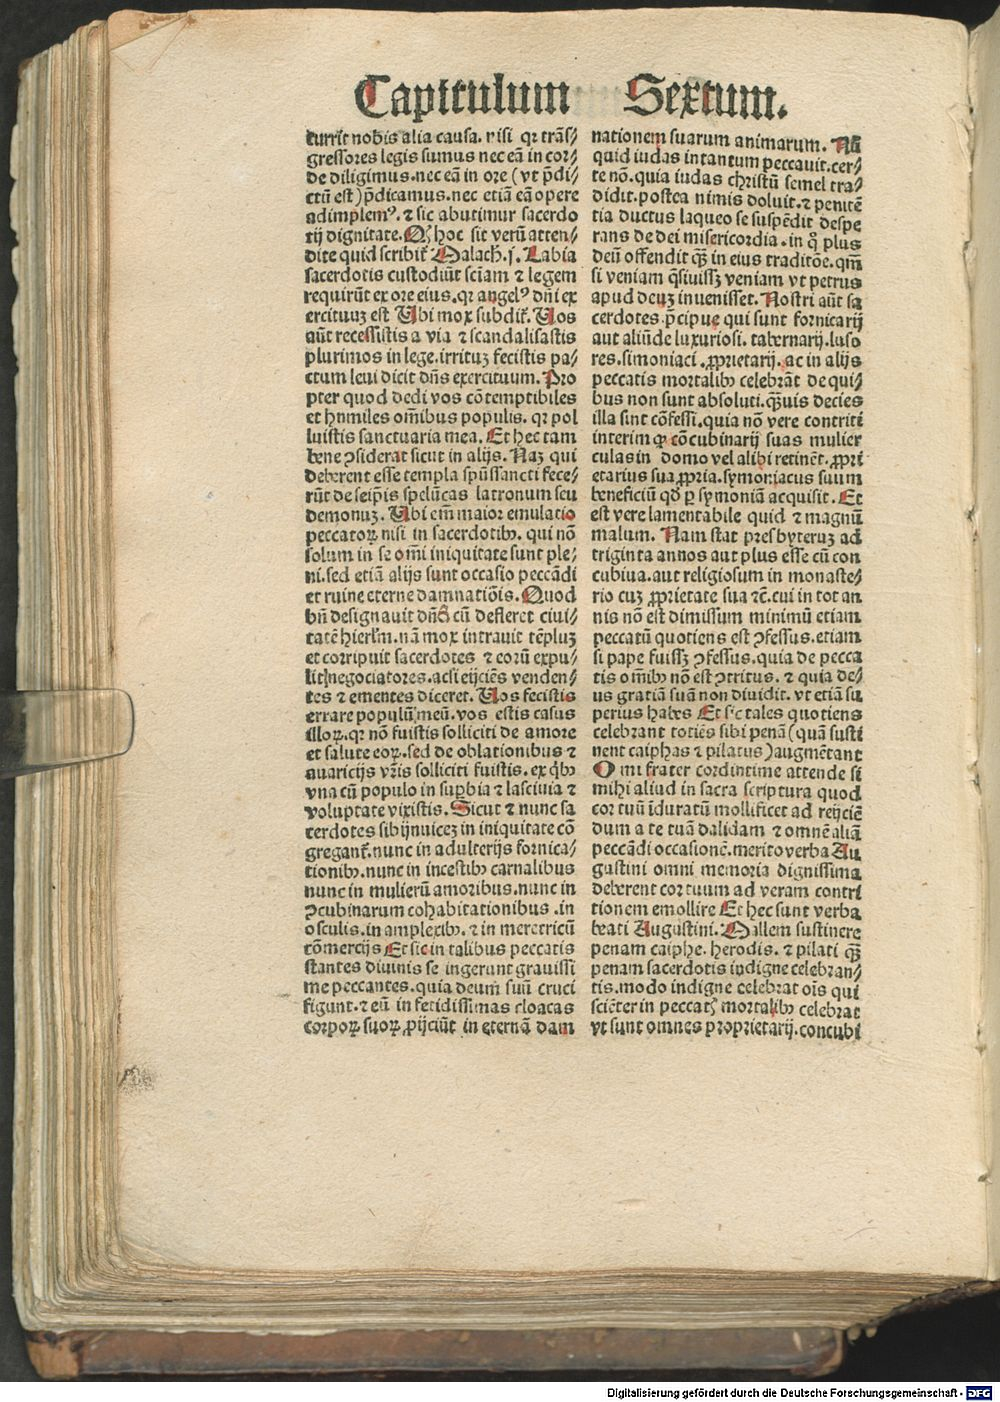 Capitulum Sextum.
currit nobis alia causa. nisi qr trãs⸗
gressores legis sumus nec eã in cor⸗
de diligimus. nec eã in ore (vt p̃di⸗
ctũ est) p̃dicamus. nec etiã eã opere
adimplemꝰ. ⁊ sic abutimur sacerdo
tij dignitate. Qꝫ hoc sit verũ atten⸗
dite quid scribit᷑ Malach. j. Labia
sacerdotis custodiũt sciãm ⁊ legem
requirũt ex ore eius. qr angelꝰ dñi ex
ercituuz est Ubi mox subdit᷑. Uos
aũt recessistis a via ⁊ scandalisastis
plurimos in lege. irrituz fecistis pa⸗
ctum leui dicit dñs exercituum. Pro
pter quod dedi vos cõtemptibiles
et humiles om̃ibus populis. qr pol
luistis sanctuaria mea. Et hec tam
bene ꝯsiderat sicut in alijs. Naz qui
deberent esse templa spũssancti fece⸗
rũt de seip̃is spelũcas latronum seu
demonuz. Ubi em̃ maior emulatio
peccatoꝝ nisi in sacerdotibꝫ. qui nõ
solum in se om̃i iniquitate sunt ple⸗
ni. sed etiã alijs sunt occasio peccãdi
et ruine eterne damnatiõis. Quod
bñ designauit dñs cũ defleret ciui⸗
tatẽ hierlm̃. nã mox intrauit tẽpluz
et corripuit sacerdotes ⁊ eorũ expu⸗
lit negociatores. acsi eijciẽs venden⸗
tes ⁊ ementes diceret. Uos fecistis
errare populũ meũ. vos estis casus
illoꝝ. qr nõ fuistis solliciti de amore
et salute eoꝝ. sed de oblationibus ⁊
auaricijs vr̃is solliciti fuistis. ex q̃bꝫ
vna cũ populo in suꝑbia ⁊ lasciuia ⁊
voluptate vixistis. Sicut ⁊ nunc sa
cerdotes sibijnuicez in iniquitate cõ
gregant᷑. nunc in adulterijs fornica⸗
tionibꝫ. nunc in incestibꝫ carnalibus
nunc in mulierũ amoribus. nunc in
ꝯcubinarum cohabitationibus. in
osculis. in amplexibꝫ. ⁊ in meretricũ
cõmercijs Et sic in talibus peccatis
stantes diuinis se ingerunt grauissi
me peccantes. quia deum suũ cruci
figunt. ⁊ eũ in fetidissimas cloacas
corpoꝝ suoꝝ ꝓijciũt in eternã dam
nationem suarum animarum. Nũ
quid iudas intantum peccauit. cer⸗
te nõ. quia iudas christũ semel tra⸗
didit. postea nimis doluit. ⁊ penitẽ
tia ductus laqueo se suspẽdit despe
rans de dei misericordia. in qͦ plus
deũ offendit qꝫ̃ in eius traditõe. qm̃
si veniam q̃siuissꝫ veniam vt petrus
apud deuz inuenisset. Nostri aũt sa
cerdotes p̃cipue qui sunt fornicarij
aut aliũde luxuriosi. tabernarij. luso
res. simoniaci. ꝓprietarij. ac in alijs
peccatis mortalibꝫ celebrãt de qui⸗
bus non sunt absoluti. qꝫ̃uis decies
illa sint cõfessi. quia nõ vere contriti
interimqꝫ cõcubinarij suas mulier
culas in domo vel alibi retinẽt. ꝓpri
etarius sua ꝓpria. symoniacus suum
beneficiũ qd̃ ꝑ symoniã acquisit. Et
est vere lamentabile quid ⁊ magnũ
malum. Nam stat presbyteruz ad
triginta annos aut plus esse cũ con
cubiua. aut religiosum in monaste⸗
rio cuz ꝓprietate sua ⁊c̃. cui in tot an
nis nõ est dimissum minimũ etiam
peccatũ quotiens est ꝯfessus. etiam
si pape fuissꝫ ꝯfessus. quia de pecca
tis om̃ibꝫ nõ est ꝯtritus. ⁊ quia de⸗
us gratiã suã non diuidit. vt etiã su
perius habes Et sic tales quotiens
celebrant totiẽs sibi penã (quã susti
nent caiphas ⁊ pilatus) augmẽtant
O mi frater cordintime attende si
mihi aliud in sacra scriptura quod
cor tuũ ĩduratũ mollificet ad reijciẽ
dum a te tuã dalidam ⁊ omnẽ aliã
peccãdi occasionẽ. merito verba Au
gustini omni memoria dignissima
deberent cor tuum ad veram contri
tionem emollire Et hec sunt verba
beati Augustini. Mallem sustinere
penam caiphe. herodis. ⁊ pilati qꝫ̃
penam sacerdotis indigne celebran⸗
tis. modo indigne celebrat oĩs qui
sciẽter in peccatꝭ mortalibꝫ celebrat
vt sunt omnes proprietarij. concubi
Digitalisierung gefördert durch die Deutsche Forschungsgemeinschaft - DFG